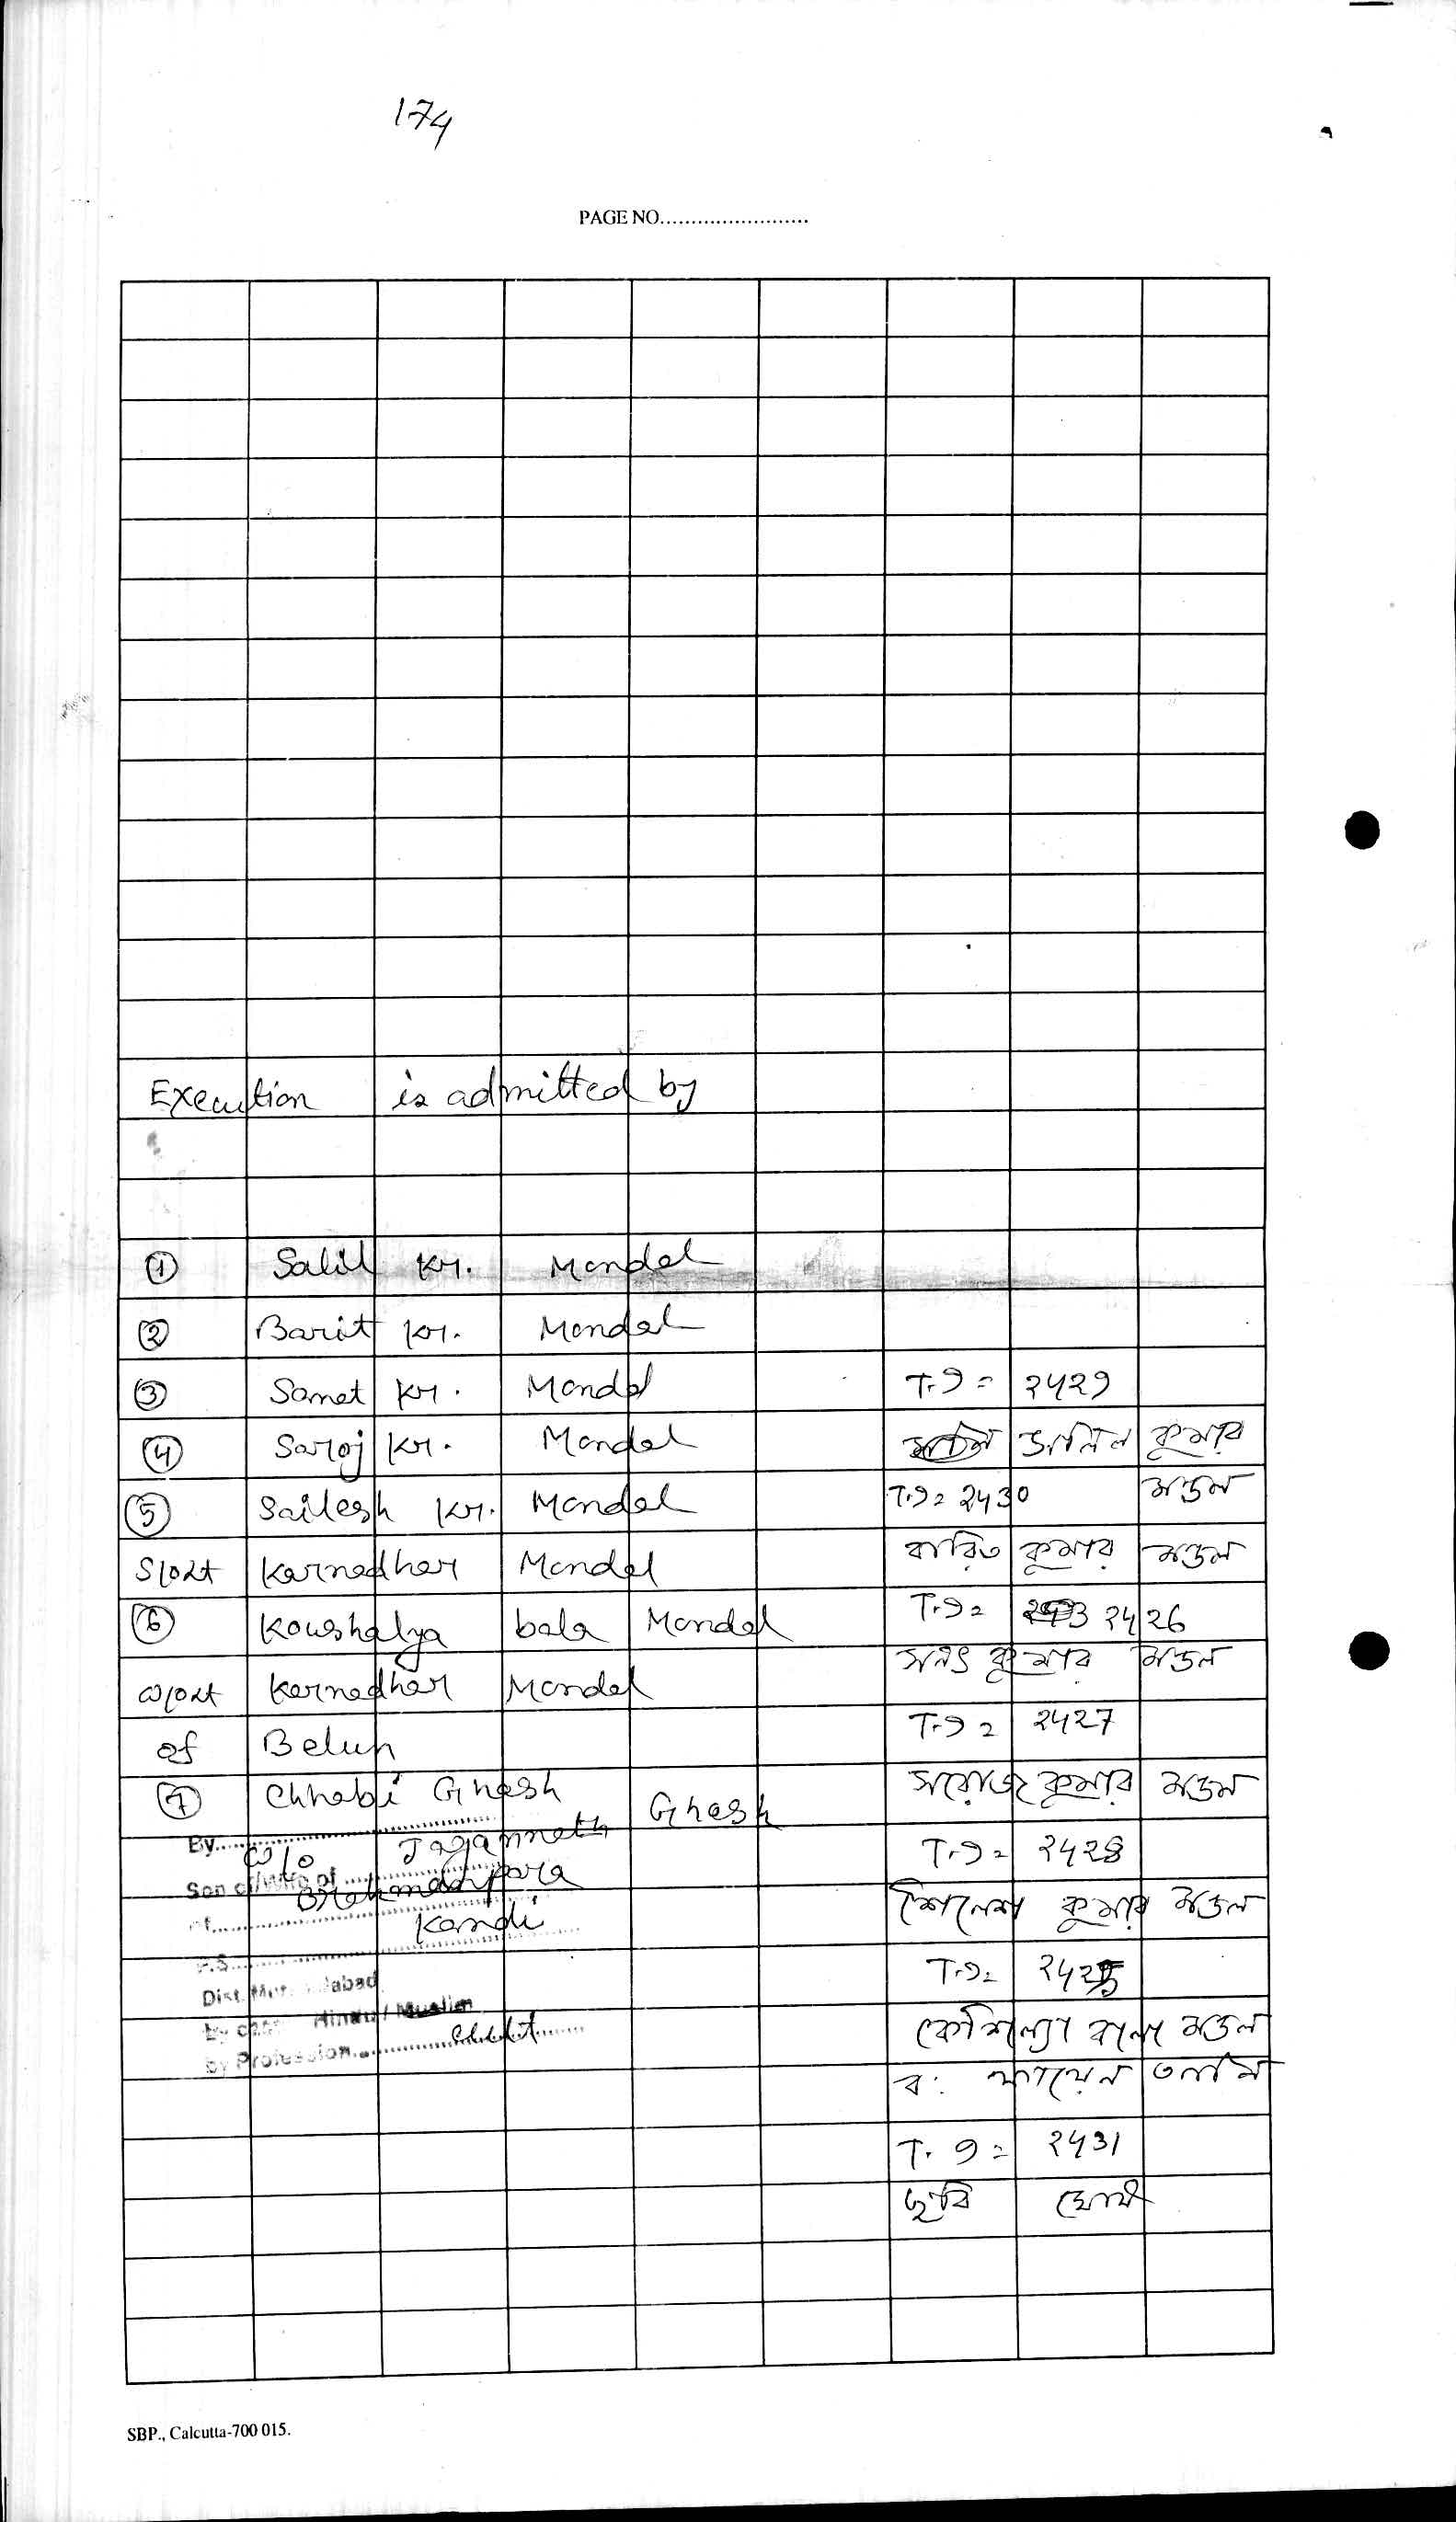 174
PAGE NO........................
Execution is admitted by
① Salil Kr. Mondal
② Barit Kr. Mondal
③ Sanat Kr. Mondal
④ Saroj Kr. Mondal
⑤ Sailesh Kr. Mondal
S/o Lt Karnadhar Mondal
⑥ Koushalya bala Mondal
W/o Lt Karnadhar Mondal
of Belun
⑦ Chhabi Ghosh
By........
W/o Jagannath Ghosh
Son of/Wife of
Brahmanpara
Kandi
P.S.
Dist. Murshidabad
by caste Hindu / Muslim
by Profession
T.I = 2429
সলিল কুমার
মন্ডল
T.I = 2430
বারিত কুমার মন্ডল
T.I = 2426
সনৎ কুমার মন্ডল
T.I = 2427
সরোজ কুমার মন্ডল
T.I = 2428
শৈলেশ কুমার মন্ডল
T.I =
কৌশল্যা বালা মন্ডল
ব:
T.I = 2431
ছবি ঘোষ
SBP., Calcutta-700 015.